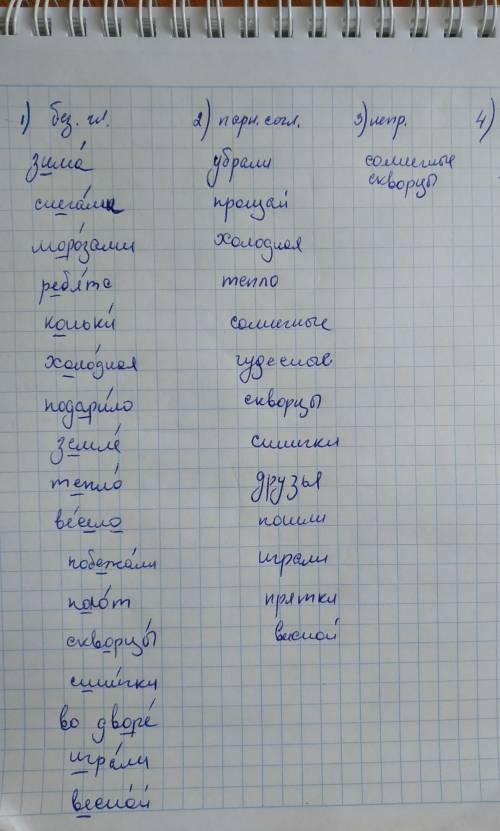 1) без. гл.
зима́
снега́ми
моро́зами
ребя́та
коньки́
холо́дная
подари́ло
земле́
тепло́
ве́село
побежа́ли
пою́т
скворцы́
сини́чки
во дворе́
игра́ли
весно́й
2) парн. согл.
убрали
прощай
холодная
тепло
солнечные
чудесные
скворцы
синички
друзья
пошли
играли
прятки
весной
3) непр.
солнечные
скворцы
4)